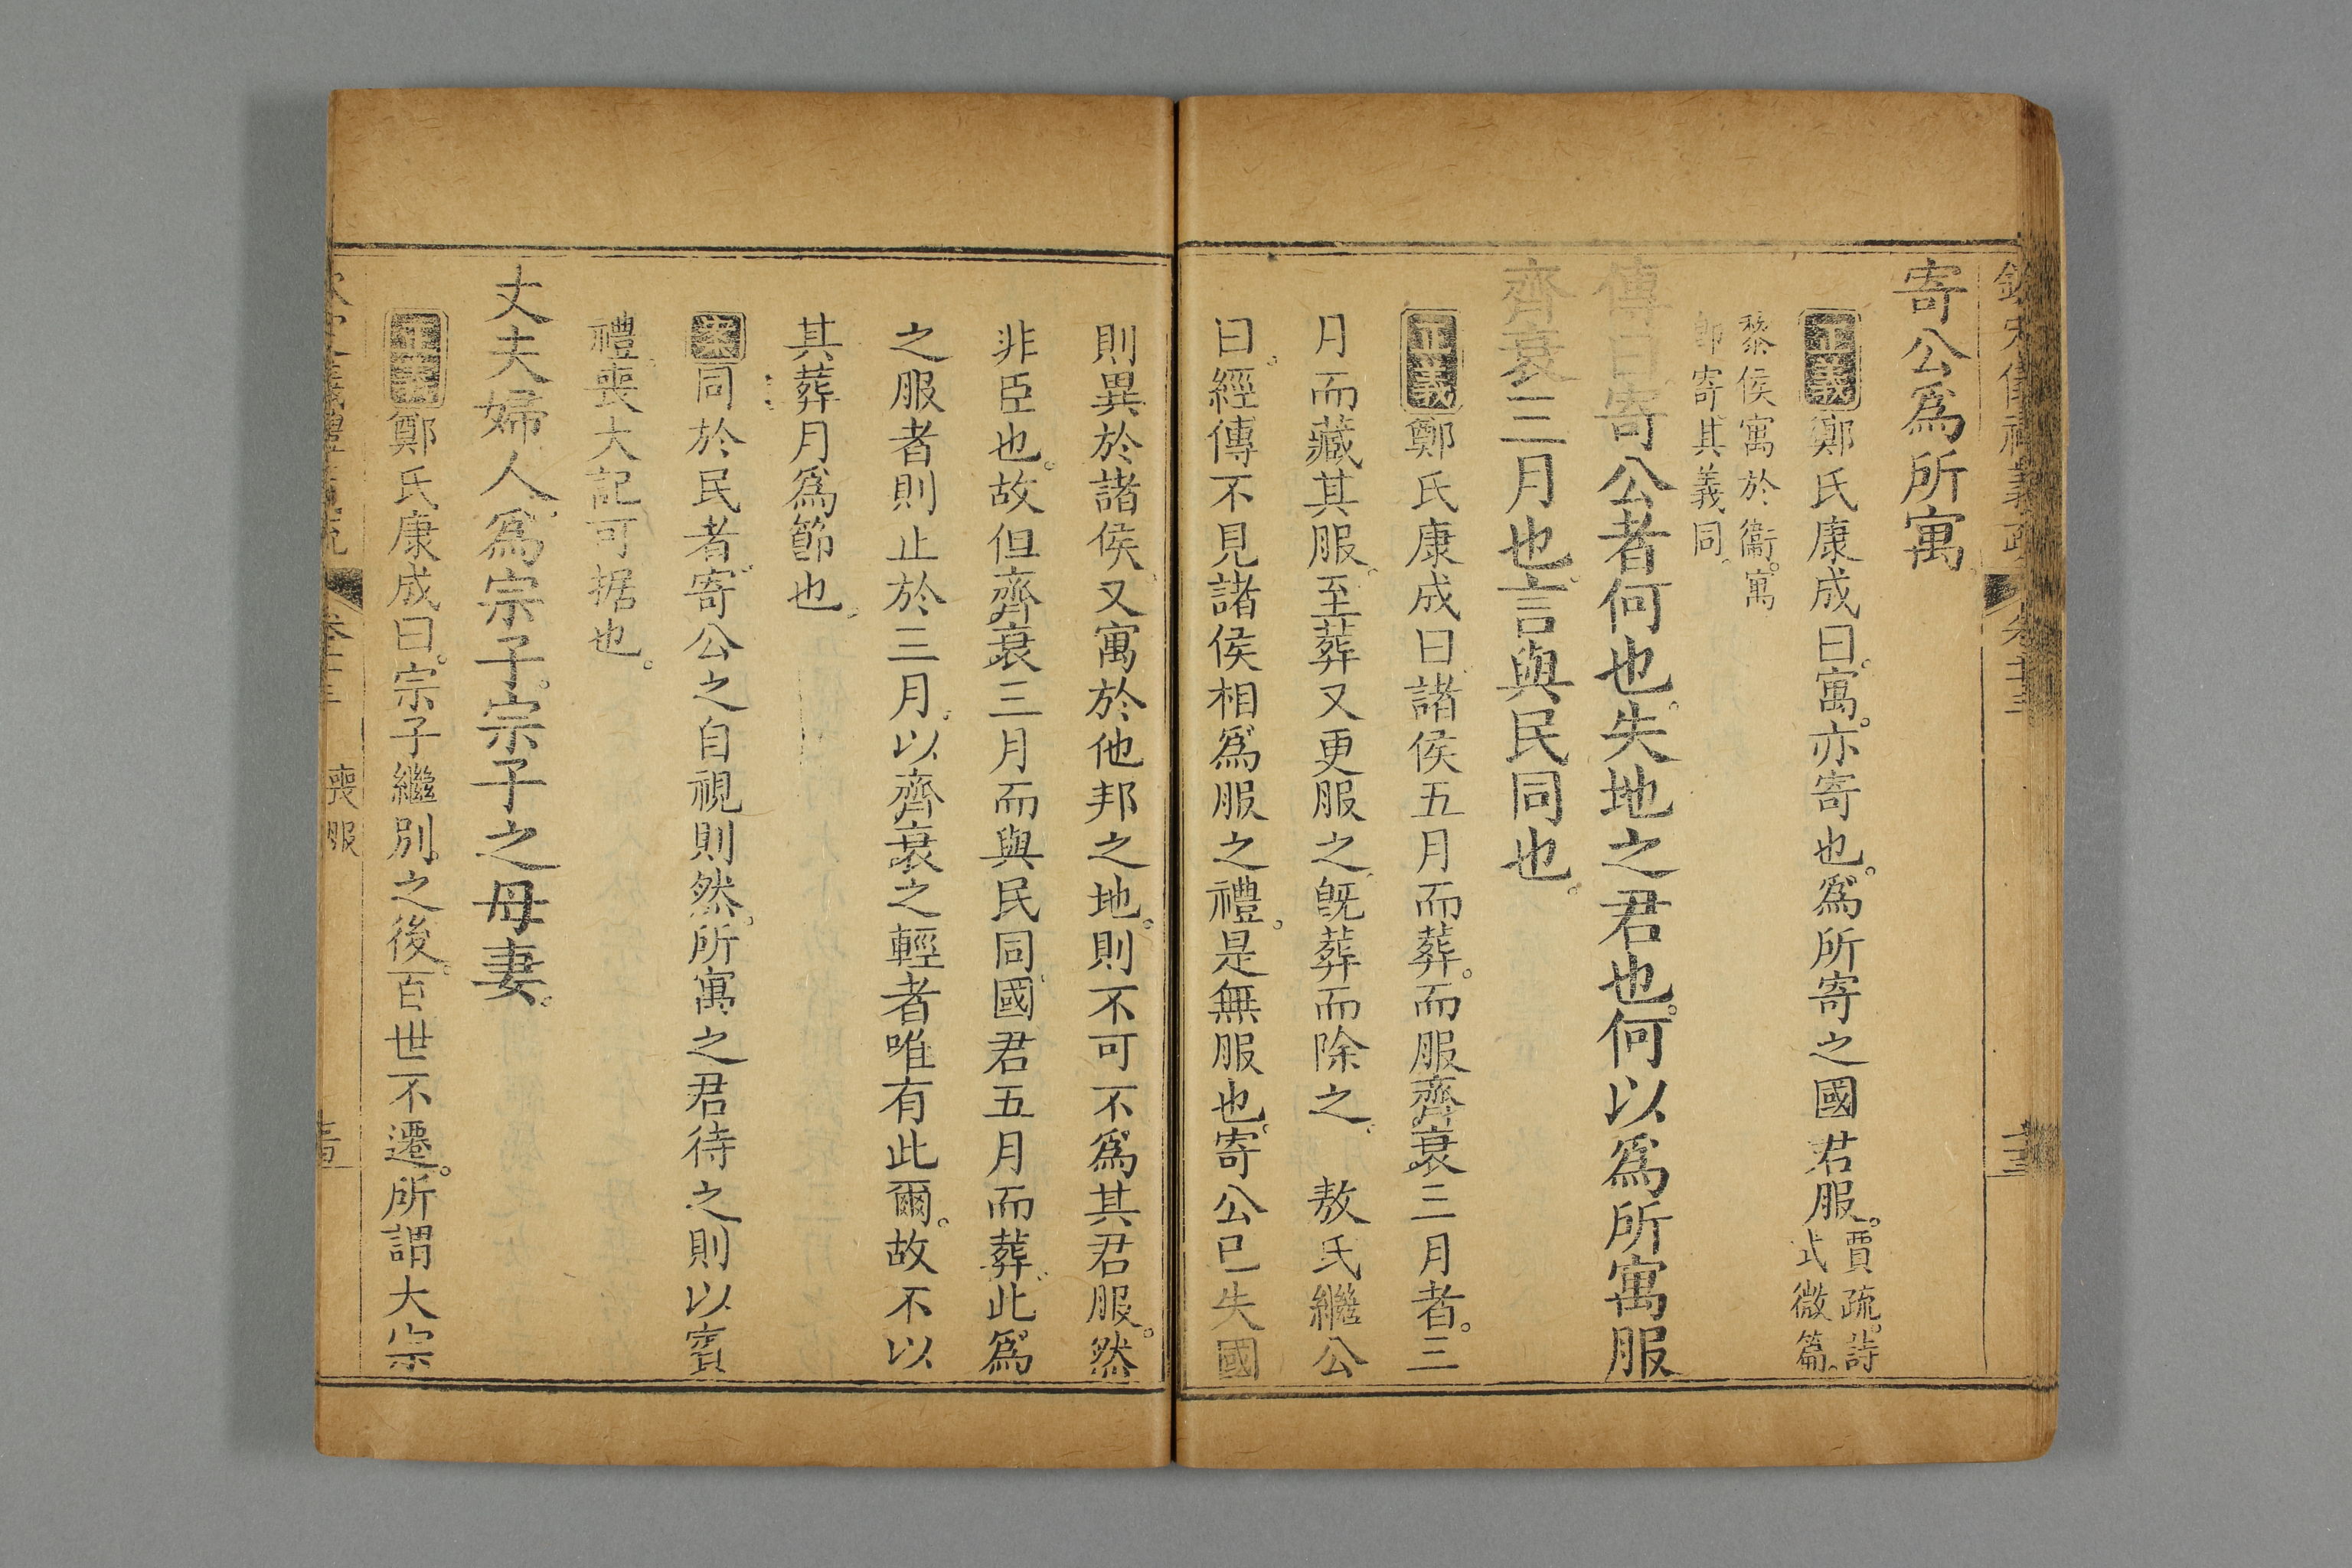 欽定儀禮義疏 卷二十三 二十三
寄公爲所寓
正義鄭氏康成曰。寓。亦寄也。爲所寄之國君服。賈疏。詩式微篇。
黎侯寓於衞。寓卽寄。其義同。
傳曰。寄公者何也。失地之君也。何以爲所寓服
齊衰三月也。言與民同也。
正義鄭氏康成曰。諸侯五月而葬。而服齊衰三月者。三
月而藏其服。至葬又更服之。旣葬而除之。 敖氏繼公
曰。經傳不見諸侯相爲服之禮。是無服也。寄公已失國
則異於諸侯。又寓於他邦之地。則不可不爲其君服。然
非臣也。故但齊衰三月而與民同。國君五月而葬。此爲
之服者則止於三月。以齊衰之輕者唯有此爾。故不以
其葬月爲節也。
案同於民者。寄公之自視則然。所寓之君待之則以賓
禮。喪大記可据也。
丈夫婦人。爲宗子。宗子之母妻。
正義鄭氏康成曰。宗子繼別之後。百世不遷。所謂大宗
喪服